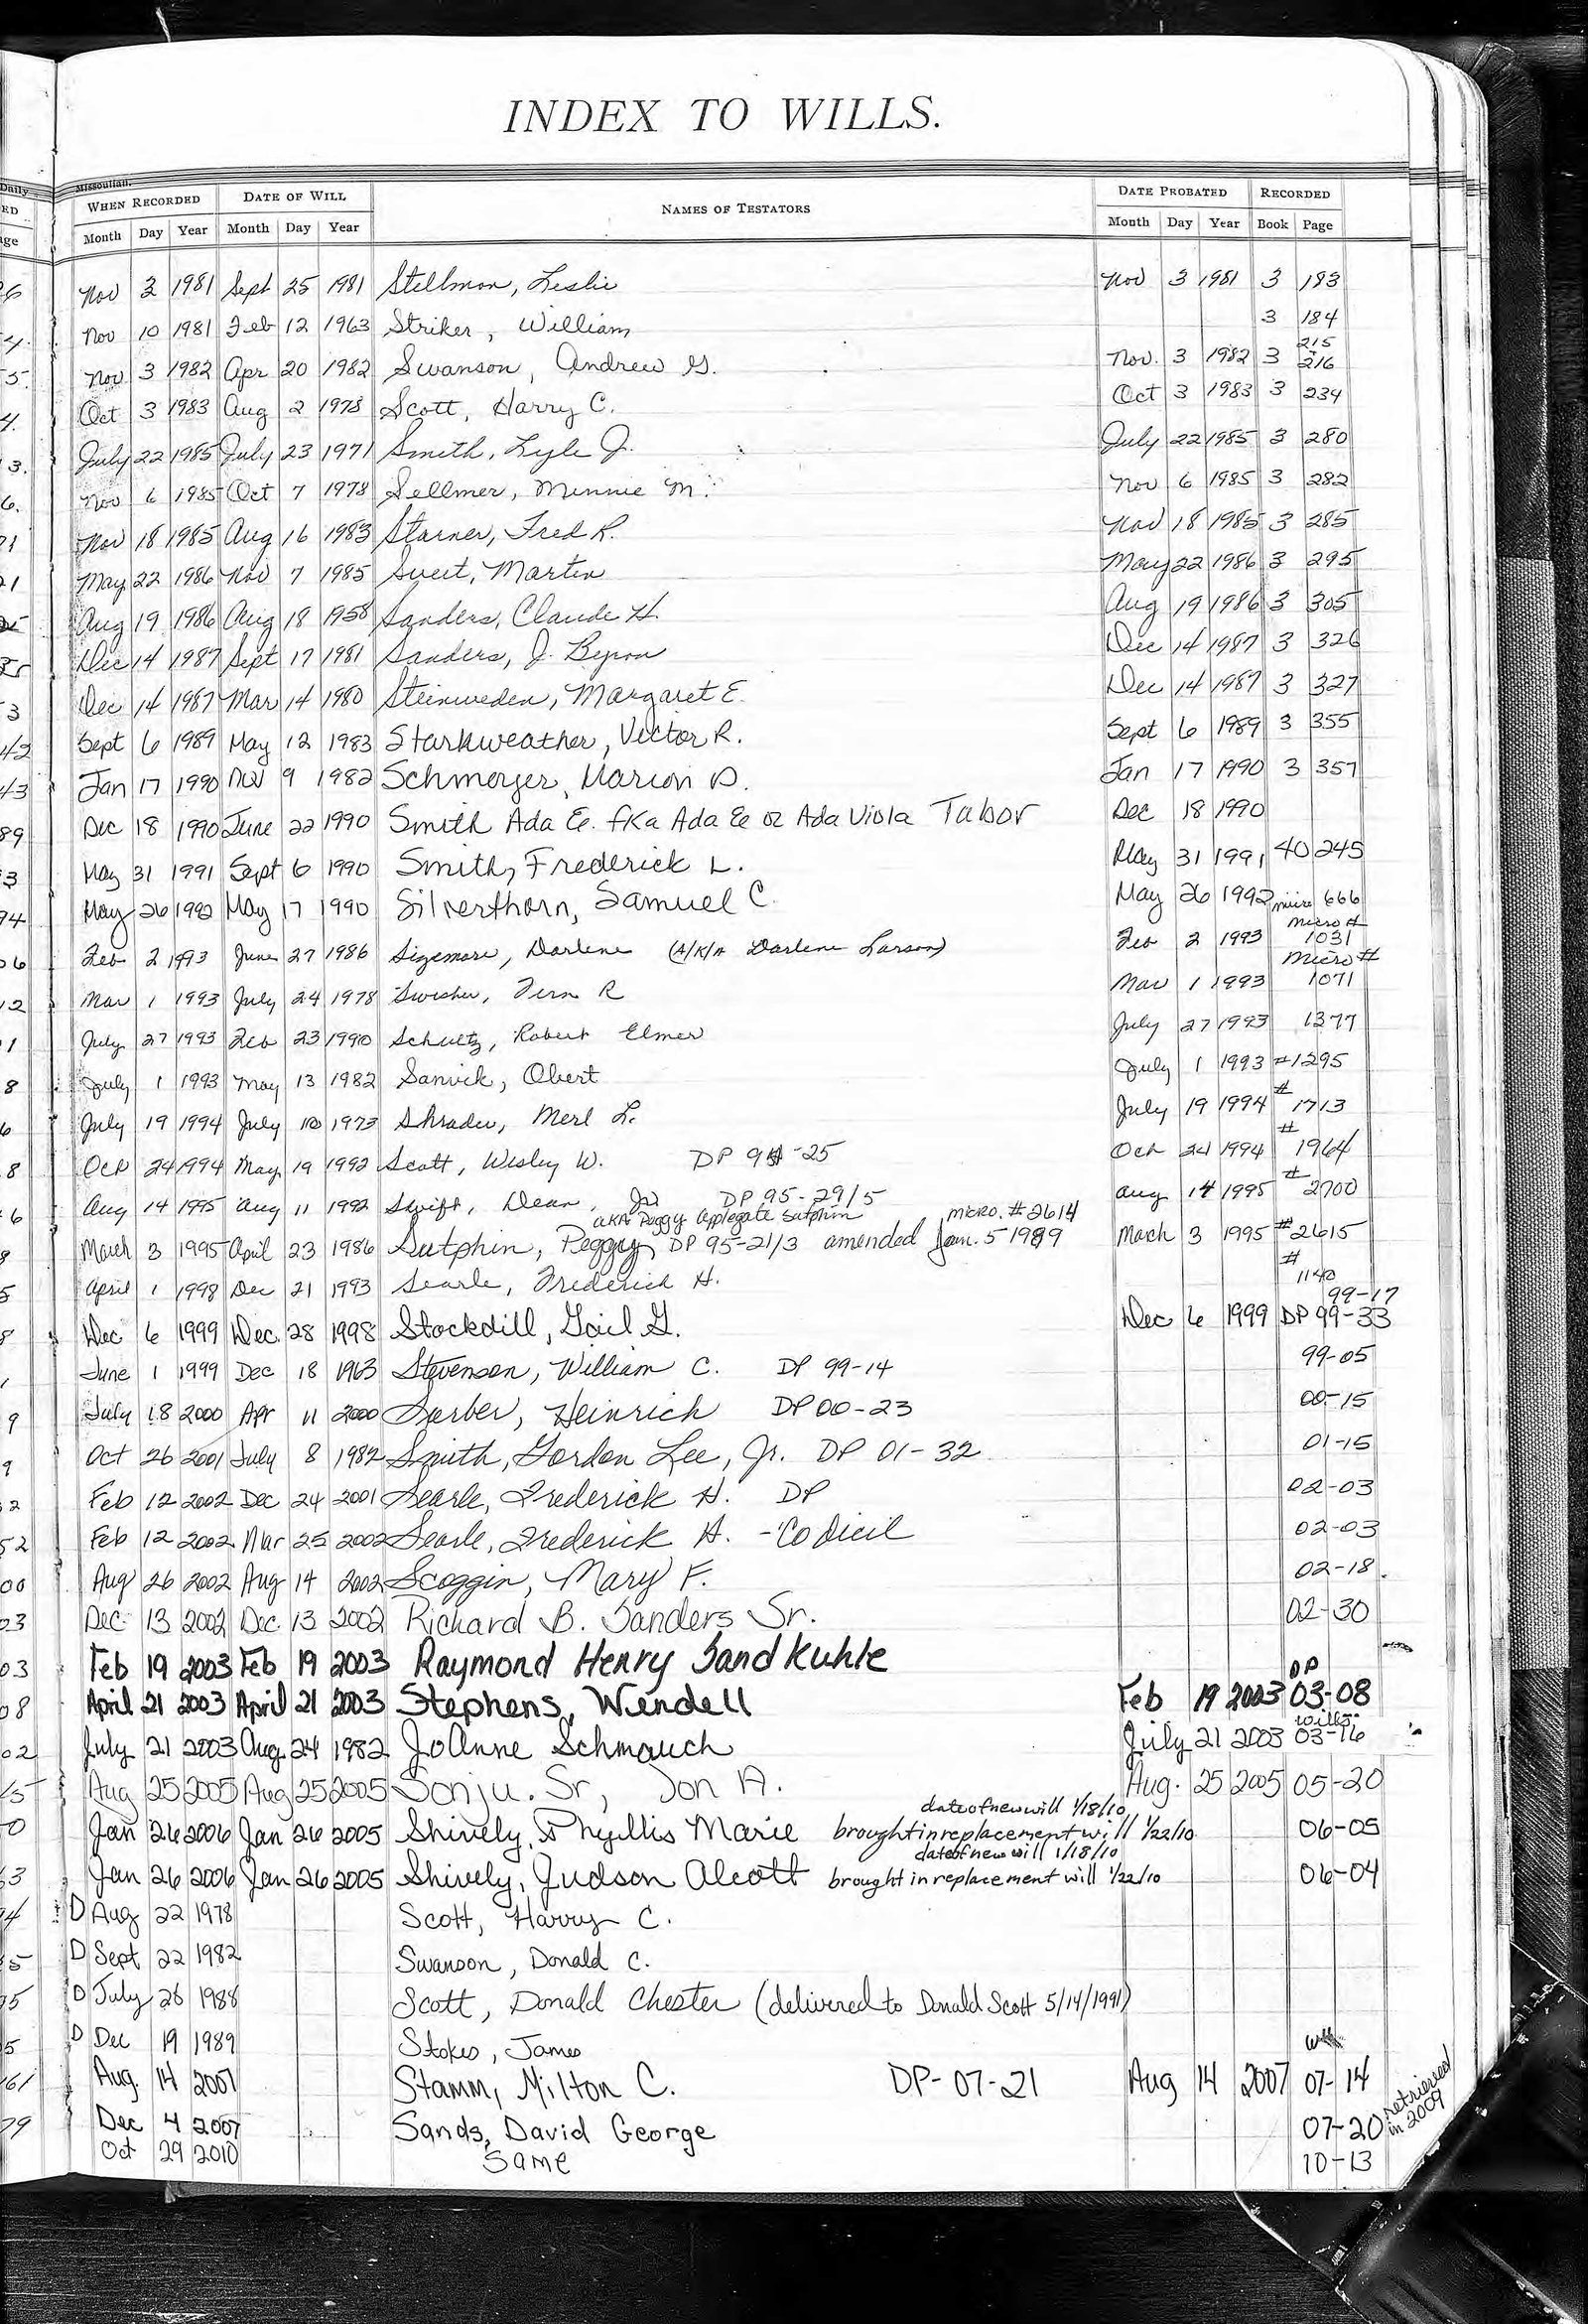 INDEX TO WILLS.
Missoulian.
WHEN RECORDED DATE OF WILL NAMES OF TESTATORS DATE PROBATED RECORDED
Month Day Year Month Day Year Month Day Year Book Page
Nov 3 1981 Sept 25 1981 Stellmon, Leslie Nov 3 1981 3 183
Nov 10 1981 Feb 12 1963 Striker, William 3 184
Nov 3 1982 Apr 20 1982 Swanson, Andrew G. Nov. 3 1982 3 215 216
Oct 3 1983 Aug 2 1978 Scott, Harry C. Oct 3 1983 3 234
July 22 1985 July 23 1971 Smith, Lyle J. July 22 1985 3 280
Nov 6 1985 Oct 7 1978 Sellmer, Minnie M. Nov 6 1985 3 282
Nov 18 1985 Aug 16 1983 Starner, Fred R. Nov 18 1985 3 285
May 22 1986 Nov 7 1985 Sveet, Martin May 22 1986 3 295
Aug 19 1986 Aug 18 1958 Sanders, Claude H. Aug 19 1986 3 305
Dec 14 1987 Sept 17 1981 Sanders, J. Byron Dec 14 1987 3 326
Dec 14 1987 Mar 14 1980 Steinweden, Margaret E. Dec 14 1987 3 327
Sept 6 1989 May 12 1983 Starkweather, Victor R. Sept 6 1989 3 355
Jan 17 1990 Nov 9 1982 Schmoyer, Marion D. Jan 17 1990 3 357
Dec 18 1990 June 22 1990 Smith Ada E. fka Ada E or Ada Viola Tabor Dec 18 1990
May 31 1991 Sept 6 1990 Smith, Frederick L. May 31 1991 40 245
May 26 1992 May 17 1990 Silverthorn, Samuel C. May 26 1992 micro 666
Feb 2 1993 June 27 1986 Sizemore, Darlene (A/K/A Darlene Larson) Feb 2 1993 micro # 1031
Mar 1 1993 July 24 1978 Swisher, Fern R Mar 1 1993 micro # 1071
July 27 1993 Feb 23 1990 Schultz, Robert Elmer July 27 1993 1377
July 1 1993 May 13 1982 Sanvik, Obert July 1 1993 #1295
July 19 1994 July 10 1973 Shrader, Merl L. July 19 1994 # 1713
Oct 24 1994 May 19 1992 Scott, Wesley W. DP 94-25 Oct 24 1994 # 1964
Aug 14 1995 Aug 11 1992 Swift, Dean, Jr. DP 95-29/5 Aug 14 1995 # 2700
aka Peggy Applegate Sutphin micro. #2614
March 3 1995 April 23 1986 Sutphin, Peggy DP 95-21/3 amended Jan. 5 1989 March 3 1995 #2615
April 1 1998 Dec 21 1993 Searle, Frederick H. # 1140
99-17
Dec 6 1999 Dec. 28 1998 Stockdill, Gail G. Dec 6 1999 DP 99-33
June 1 1999 Dec 18 1963 Stevenson, William C. DP 99-14 99-05
July 18 2000 Apr 11 2000 Sarber, Heinrich DP 00-23 00-15
Oct 26 2001 July 8 1982 Smith, Gordon Lee, Jr. DP 01-32 01-15
Feb 12 2002 Dec 24 2001 Searle, Frederick H. DP 02-03
Feb 12 2002 Mar 25 2002 Searle, Frederick H. - Codicil 02-03
Aug 26 2002 Aug 14 2002 Scoggin, Mary F. 02-18
Dec 13 2002 Dec. 13 2002 Richard B. Sanders Sr. 02-30
Feb 19 2003 Feb 19 2003 Raymond Henry Sandkuhle
April 21 2003 April 21 2003 Stephens, Wendell Feb 19 2003 DP 03-08
July 21 2003 Aug 24 1982 JoAnne Schmauch July 21 2003 wills 03-16
Aug 25 2005 Aug 25 2005 Sonju. Sr, Jon A. Aug. 25 2005 05-20
date of new will 1/18/10
Jan 26 2006 Jan 26 2005 Shively, Phyllis Marie brought in replacement will 1/22/10 06-05
date of new will 1/18/10
Jan 26 2006 Jan 26 2005 Shively, Judson Alcott brought in replacement will 1/22/10 06-04
D Aug 22 1978 Scott, Harry C.
D Sept 22 1982 Swanson, Donald C.
D July 26 1988 Scott, Donald Chester (delivered to Donald Scott 5/14/1991)
D Dec 19 1989 Stokes, James
Aug. 14 2007 Stamm, Milton C. DP-07-21 Aug 14 2007 will 07-14
Dec 4 2007 Sands, David George 07-20 retrieved in 2009
Oct 29 2010 Same 10-13